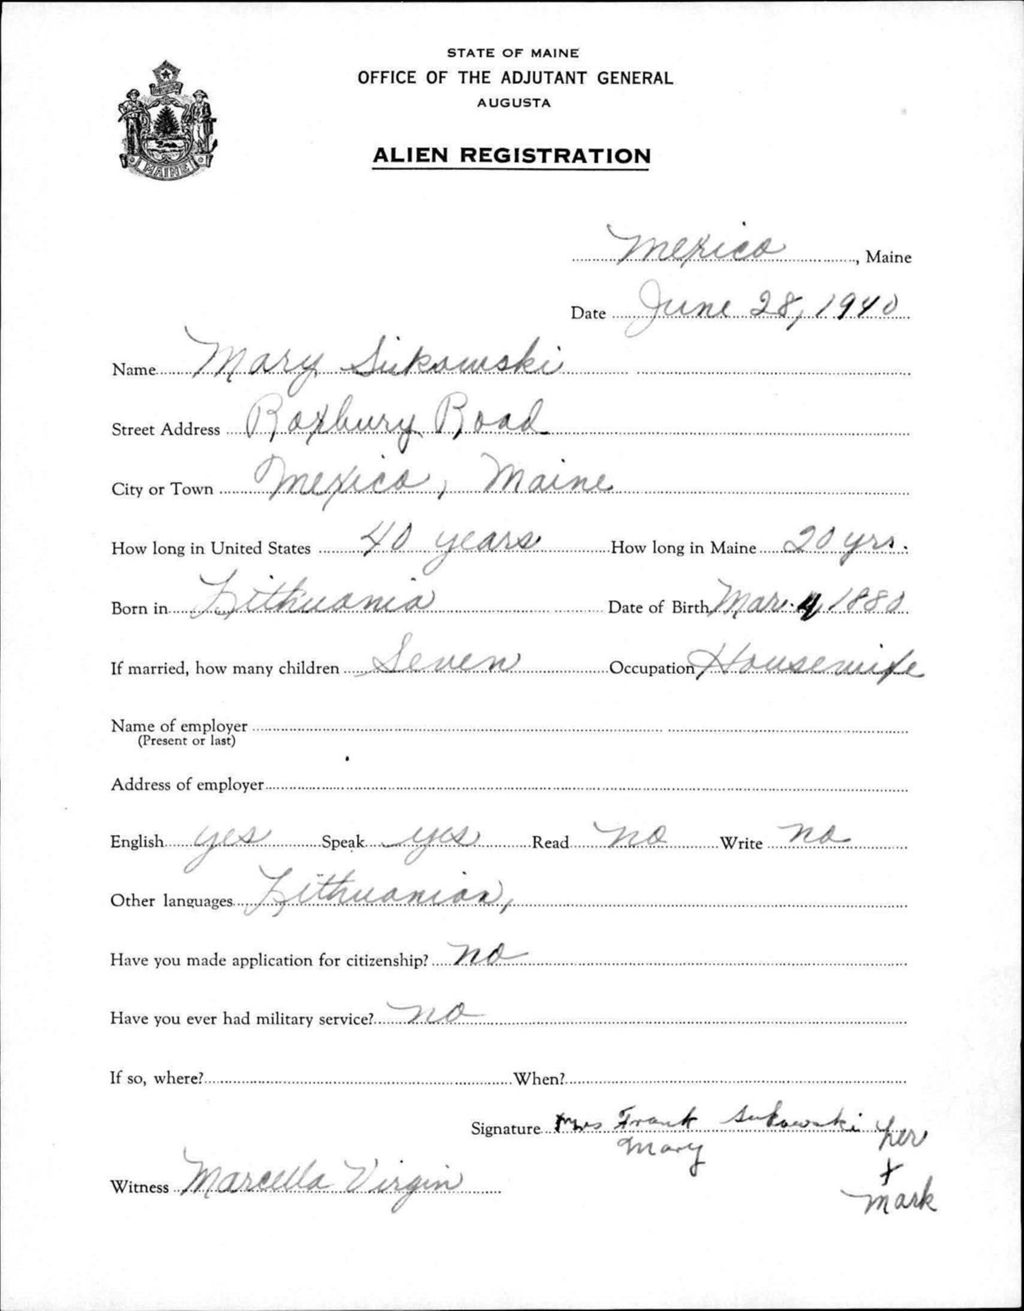 STATE OF MAINE
OFFICE OF THE ADJUTANT GENERAL
AUGUSTA
ALIEN REGISTRATION
MAINE
Mexico, Maine
Date June 28, 1940
Name Mary Sukowski
Street Address Roxbury Road
City or Town Mexico, Maine
How long in United States 40 years How long in Maine 20 yrs.
Born in Lithuania Date of Birth Mar. 4, 1880
If married, how many children Seven Occupation Housewife
Name of employer
(Present or last)
Address of employer
English yes Speak yes Read no Write no
Other languages Lithuanian,
Have you made application for citizenship? no
Have you ever had military service? no
If so, where? When?
Signature Mrs Frank Sukowski her
Mary
x
Witness Marcella Virgin
mark